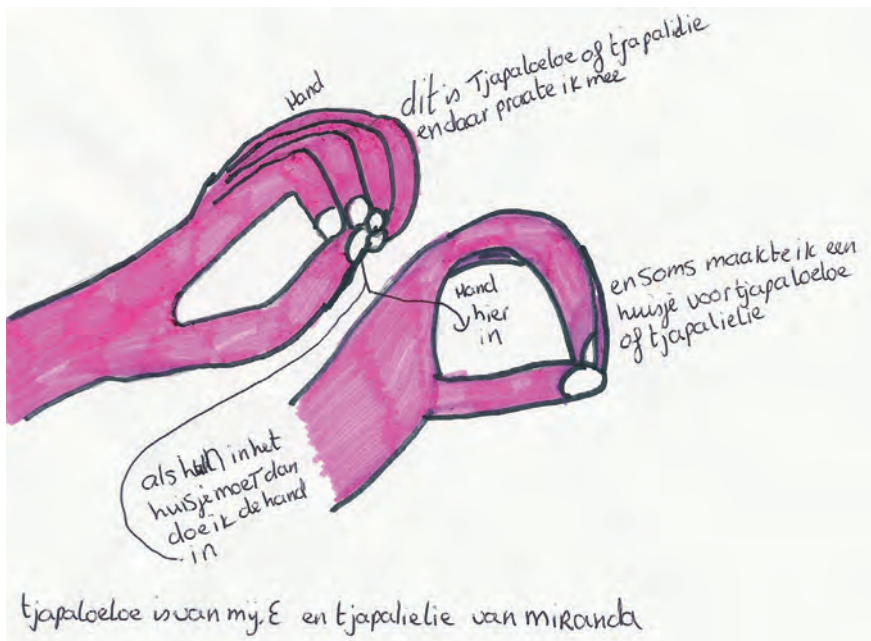 Hand
dit is Tjapaloeloe of tjapalidie
en daar praate ik mee
en soms maakte ik een
huisje voor tjapaloeloe
of tjapalielie
Hand
hier
in
als in het
huisje moet dan
doe ik de hand
in
tjapaloeloe is van mij. E en tjapalielie van miranda